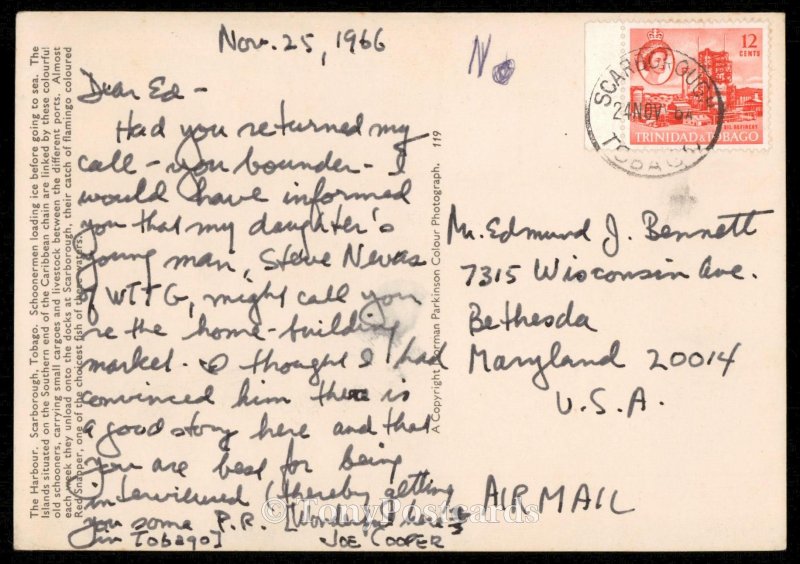 The Harbour. Scarborough, Tobago. Schoonermen loading ice before going to sea. The
Islands situated on the Southern end of the Caribbean chain are linked by these colourful
old schooners, carrying small cargoes and livestock between the different ports. Almost
each week they unload onto the docks at Scarborough, their catch of flamingo coloured
Red Snapper, one of the choicest fish of these waters.
Nov. 25, 1966
Dear Ed -
Had you returned my
call - you bounder - I
would have informed
you that my daughter's
young man, Steve Nevas
of WTTG, might call you
re the home-building
market. I thought I had
convinced him there is
a good story here and that
you are best for being
interviewed (thereby getting
you some P.R. [Wonderful here
in Tobago]
JOE COOPER
A Copyright Norman Parkinson Colour Photograph. 119
No
12
CENTS
OIL REFINERY
TRINIDAD & TOBAGO
SCARBOROUGH
24 NOV 66
TOBAGO
Mr. Edmund J. Bennett
7315 Wisconsin Ave.
Bethesda
Maryland 20014
U.S.A.
AIR MAIL
©TonyPostcards